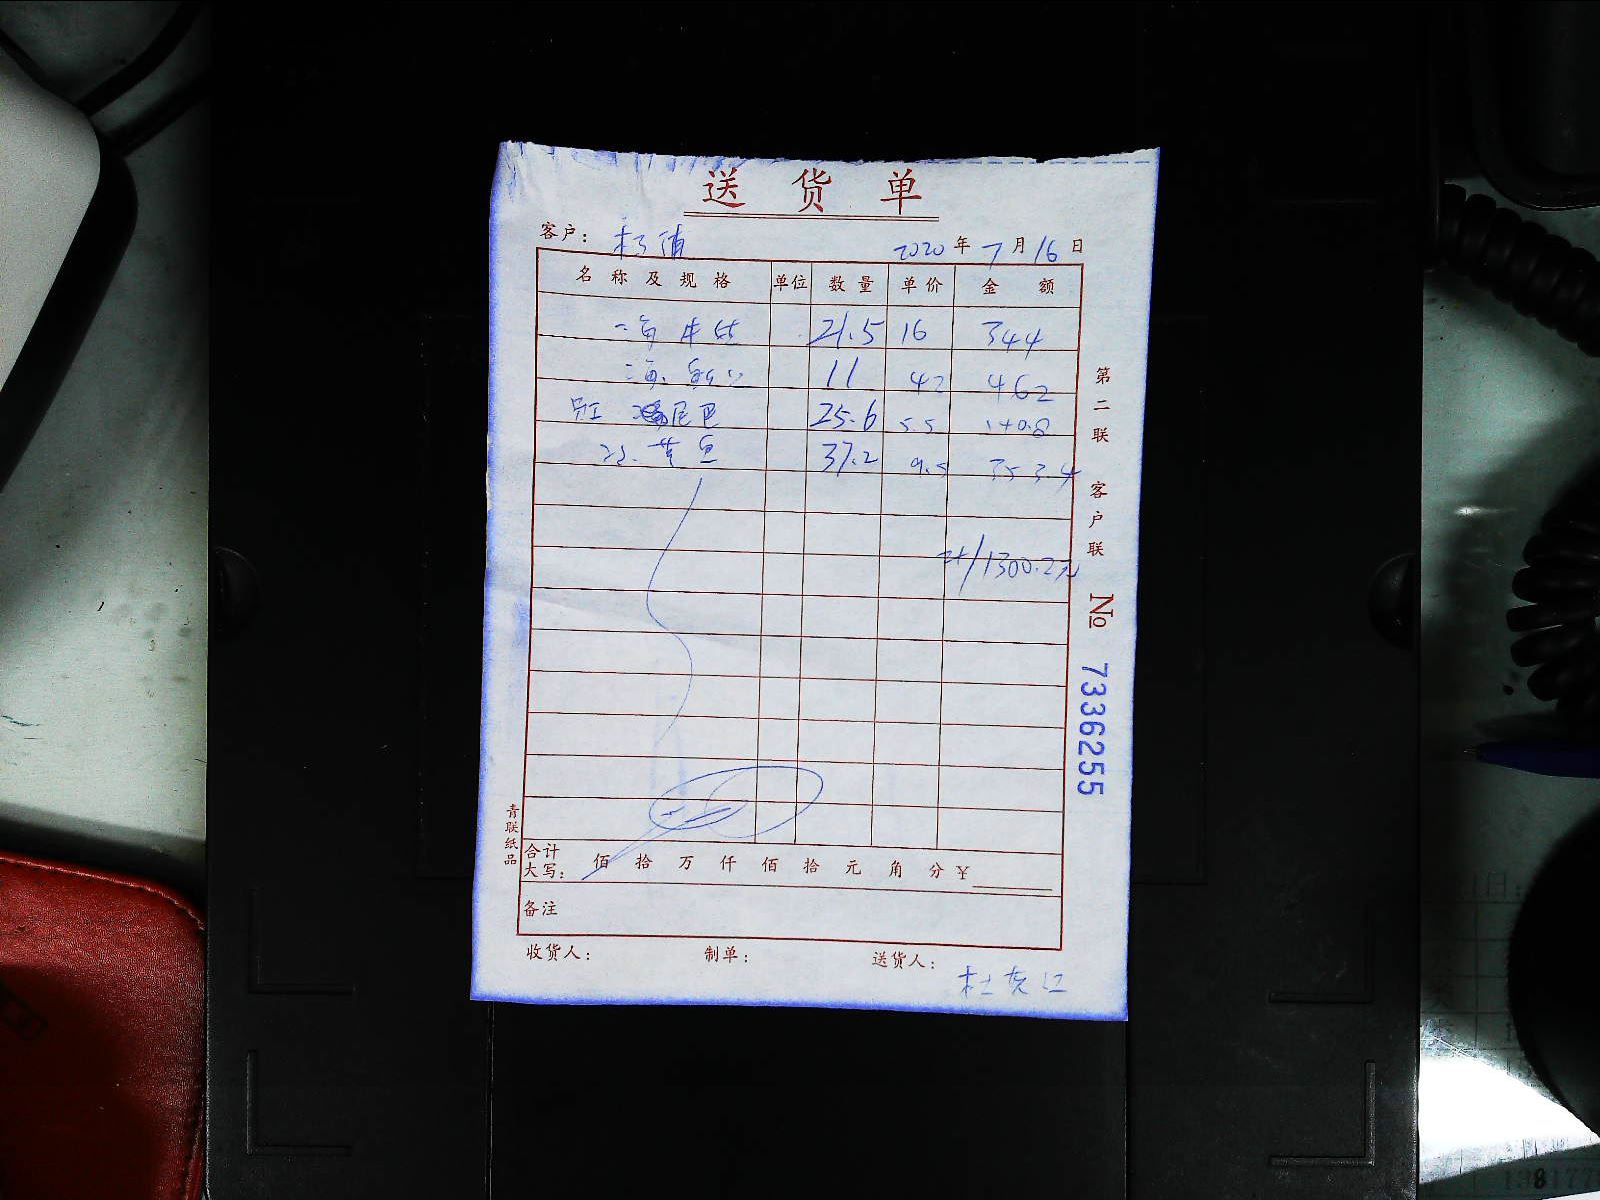 送货单
客户： 2020年7月16日
名称及规格 单位 数量 单价 金额
21.5 16 344
11 42 462
尾巴 25.6 5.5 140.8
黄鱼 37.2 9.5 353.4
计/1300.2元
合计大写： 佰 拾 万 仟 佰 拾 元 角 分 ¥
备注
收货人： 制单： 送货人：
第二联 客户联 No 7336255
青联纸品